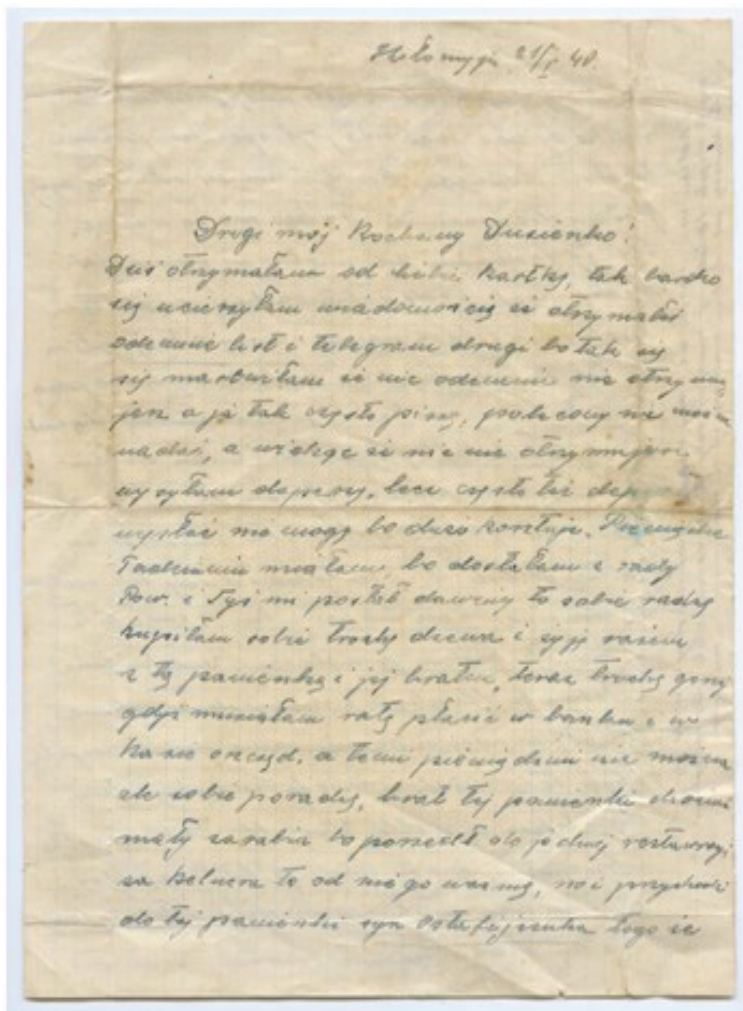 Kołomyja 21/I 40.
Drogi mój Kochany Dusieńko!
Dziś otrzymałam od Ciebie kartkę, tak bardzo
się ucieszyłam wiadomością że otrzymałeś
odemnie list i telegram drugi bo tak się
się martwiłam że nic odemnie nie otrzymu
jesz a ja tak często piszę, polecony nie można
nadać, a widząc że nic nie otrzymujesz
wysyłam depeszę, lecz często też depesz
wysłać nie mogę bo dużo kosztuje.
miałam bo dostałam z rady
Pow. i Tyś mi posłał dawniej to sobie radzę
kupiłam sobie trochę drzewa i żyję razem
z tą panienką i jej bratem, teraz trochę gorzej
gdyż musiałam ratę płacić w banku i w
kasie oszczęd. a temi pieniędzmi nie można
ale sobie poradzę, brat tej panienki
mały zarabia bo poszedł do jednej restauracji
za kelnera to od niego wezmę, no i przychodzi
do tej panienki syn tego że